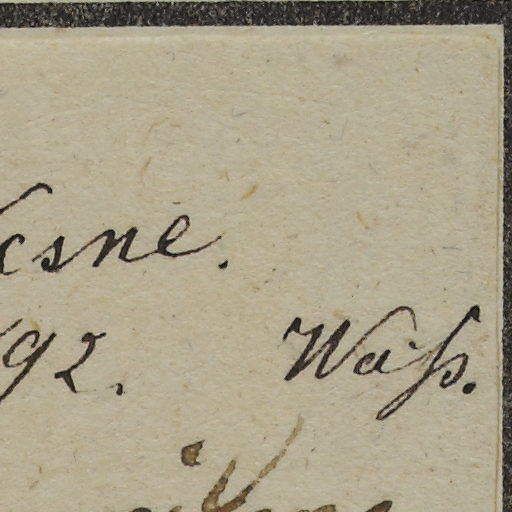 esne.
92. Waß.